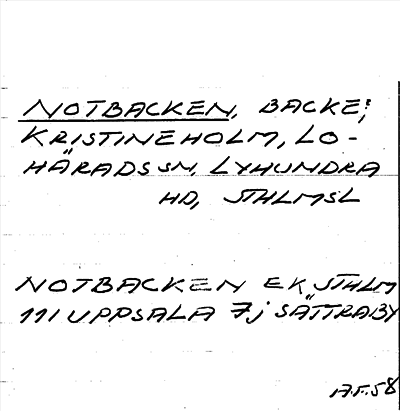 NOTBACKEN, BACKE;
KRISTINEHOLM, LO-
HÄRADS SN, LYHUNDRA
HD, STHLMSL
NOTBACKEN EK, STHLM
111 UPPSALA 7j SÄTTRABY
A.F.58